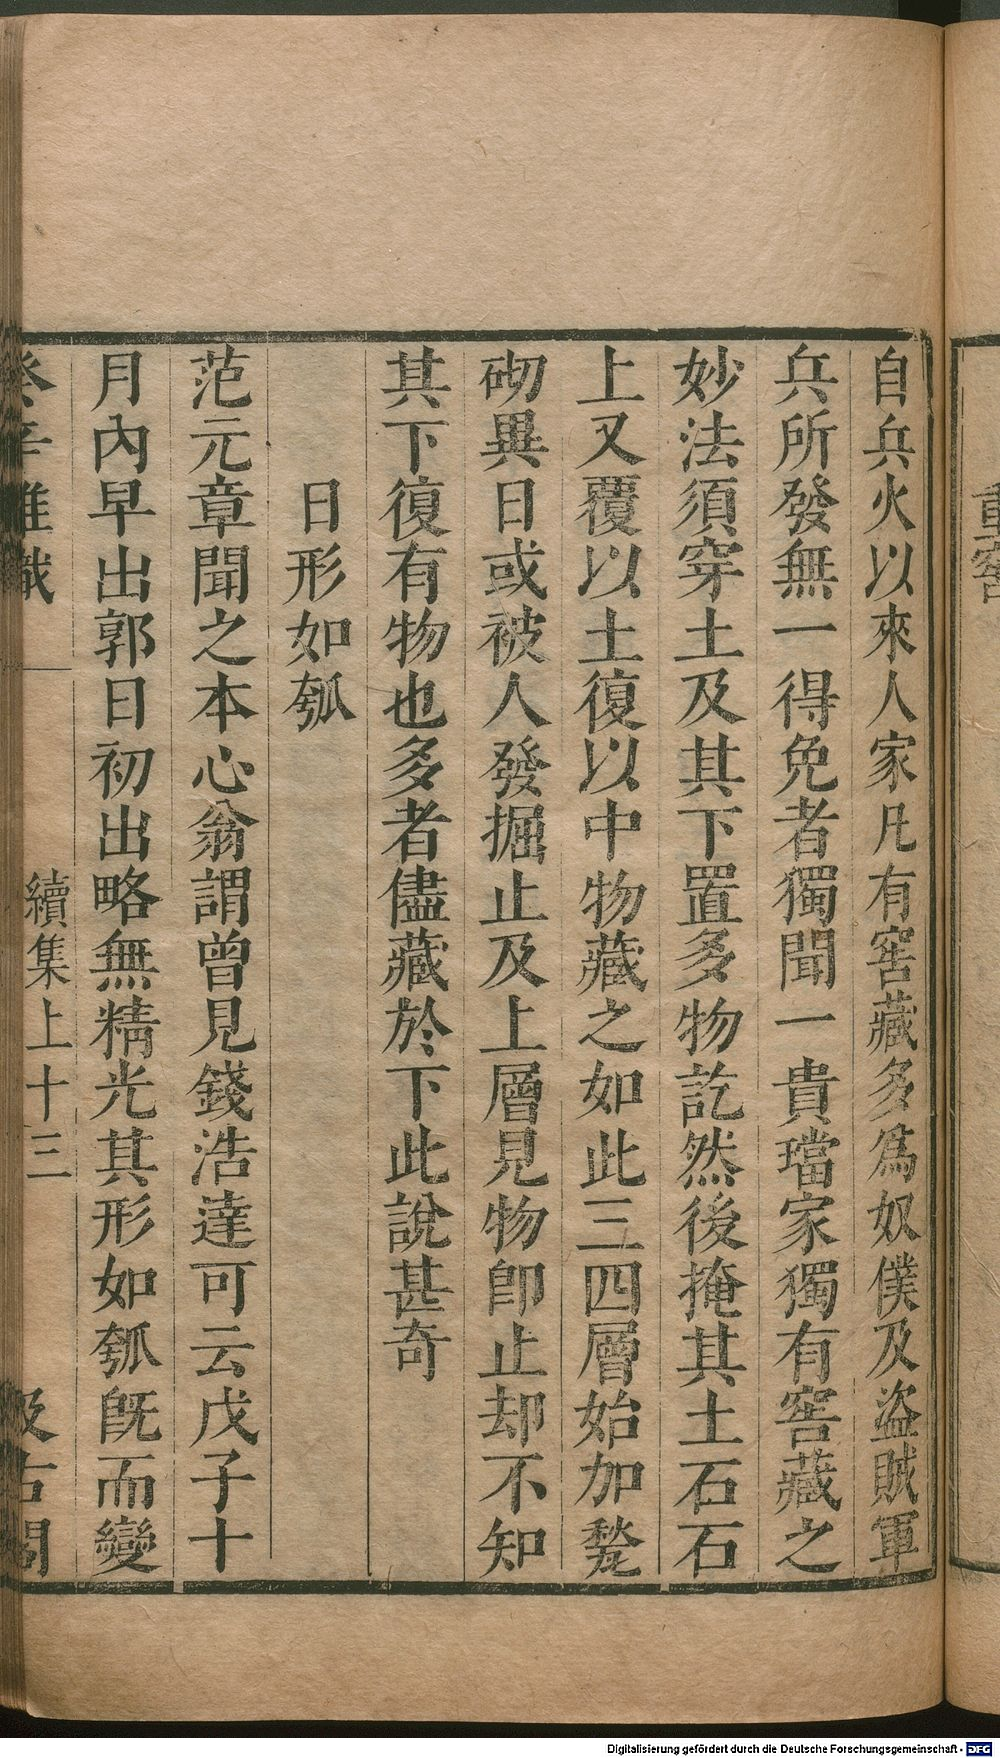 重窖
自兵火以來人家凡有窖藏多爲奴僕及盜賊軍
兵所發無一得免者獨聞一貴璫家獨有窖藏之
妙法須穿土及其下置多物訖然後掩其土石石
上又覆以土復以中物藏之如此三四層始加甃
砌異日或被人發掘止及上層見物卽止却不知
其下復有物也多者儘藏於下此說甚奇
日形如瓠
范元章聞之本心翁謂曾見錢浩達可云戊子十
月內早出郭日初出略無精光其形如瓠旣而變
癸辛雜識 續集上十三 汲古閣
Digitalisierung gefördert durch die Deutsche Forschungsgemeinschaft - DFG